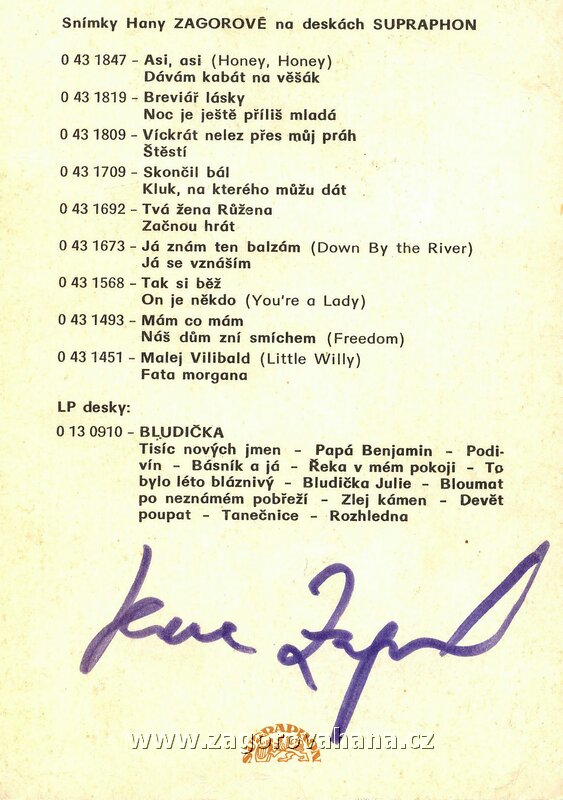 Snímky Hany ZAGOROVÉ na deskách SUPRAPHON
0 43 1847 – Asi, asi (Honey, Honey)
Dávám kabát na věšák
0 43 1819 – Breviář lásky
Noc je ještě příliš mladá
0 43 1809 – Víckrát nelez přes můj práh
Štěstí
0 43 1709 – Skončil bál
Kluk, na kterého můžu dát
0 43 1692 – Tvá žena Růžena
Začnou hrát
0 43 1673 – Já znám ten balzám (Down By the River)
Já se vznáším
0 43 1568 – Tak si běž
On je někdo (You're a Lady)
0 43 1493 – Mám co mám
Náš dům zní smíchem (Freedom)
0 43 1451 – Malej Vilibald (Little Willy)
Fata morgana
LP desky:
0 13 0910 – BLUDIČKA
Tisíc nových jmen – Papá Benjamin – Podi-
vín – Básník a já – Řeka v mém pokoji – To
bylo léto bláznivý – Bludička Julie – Bloumat
po neznámém pobřeží – Zlej kámen – Devět
poupat – Tanečnice – Rozhledna
SUPRAPHON
www.zagorovahana.cz